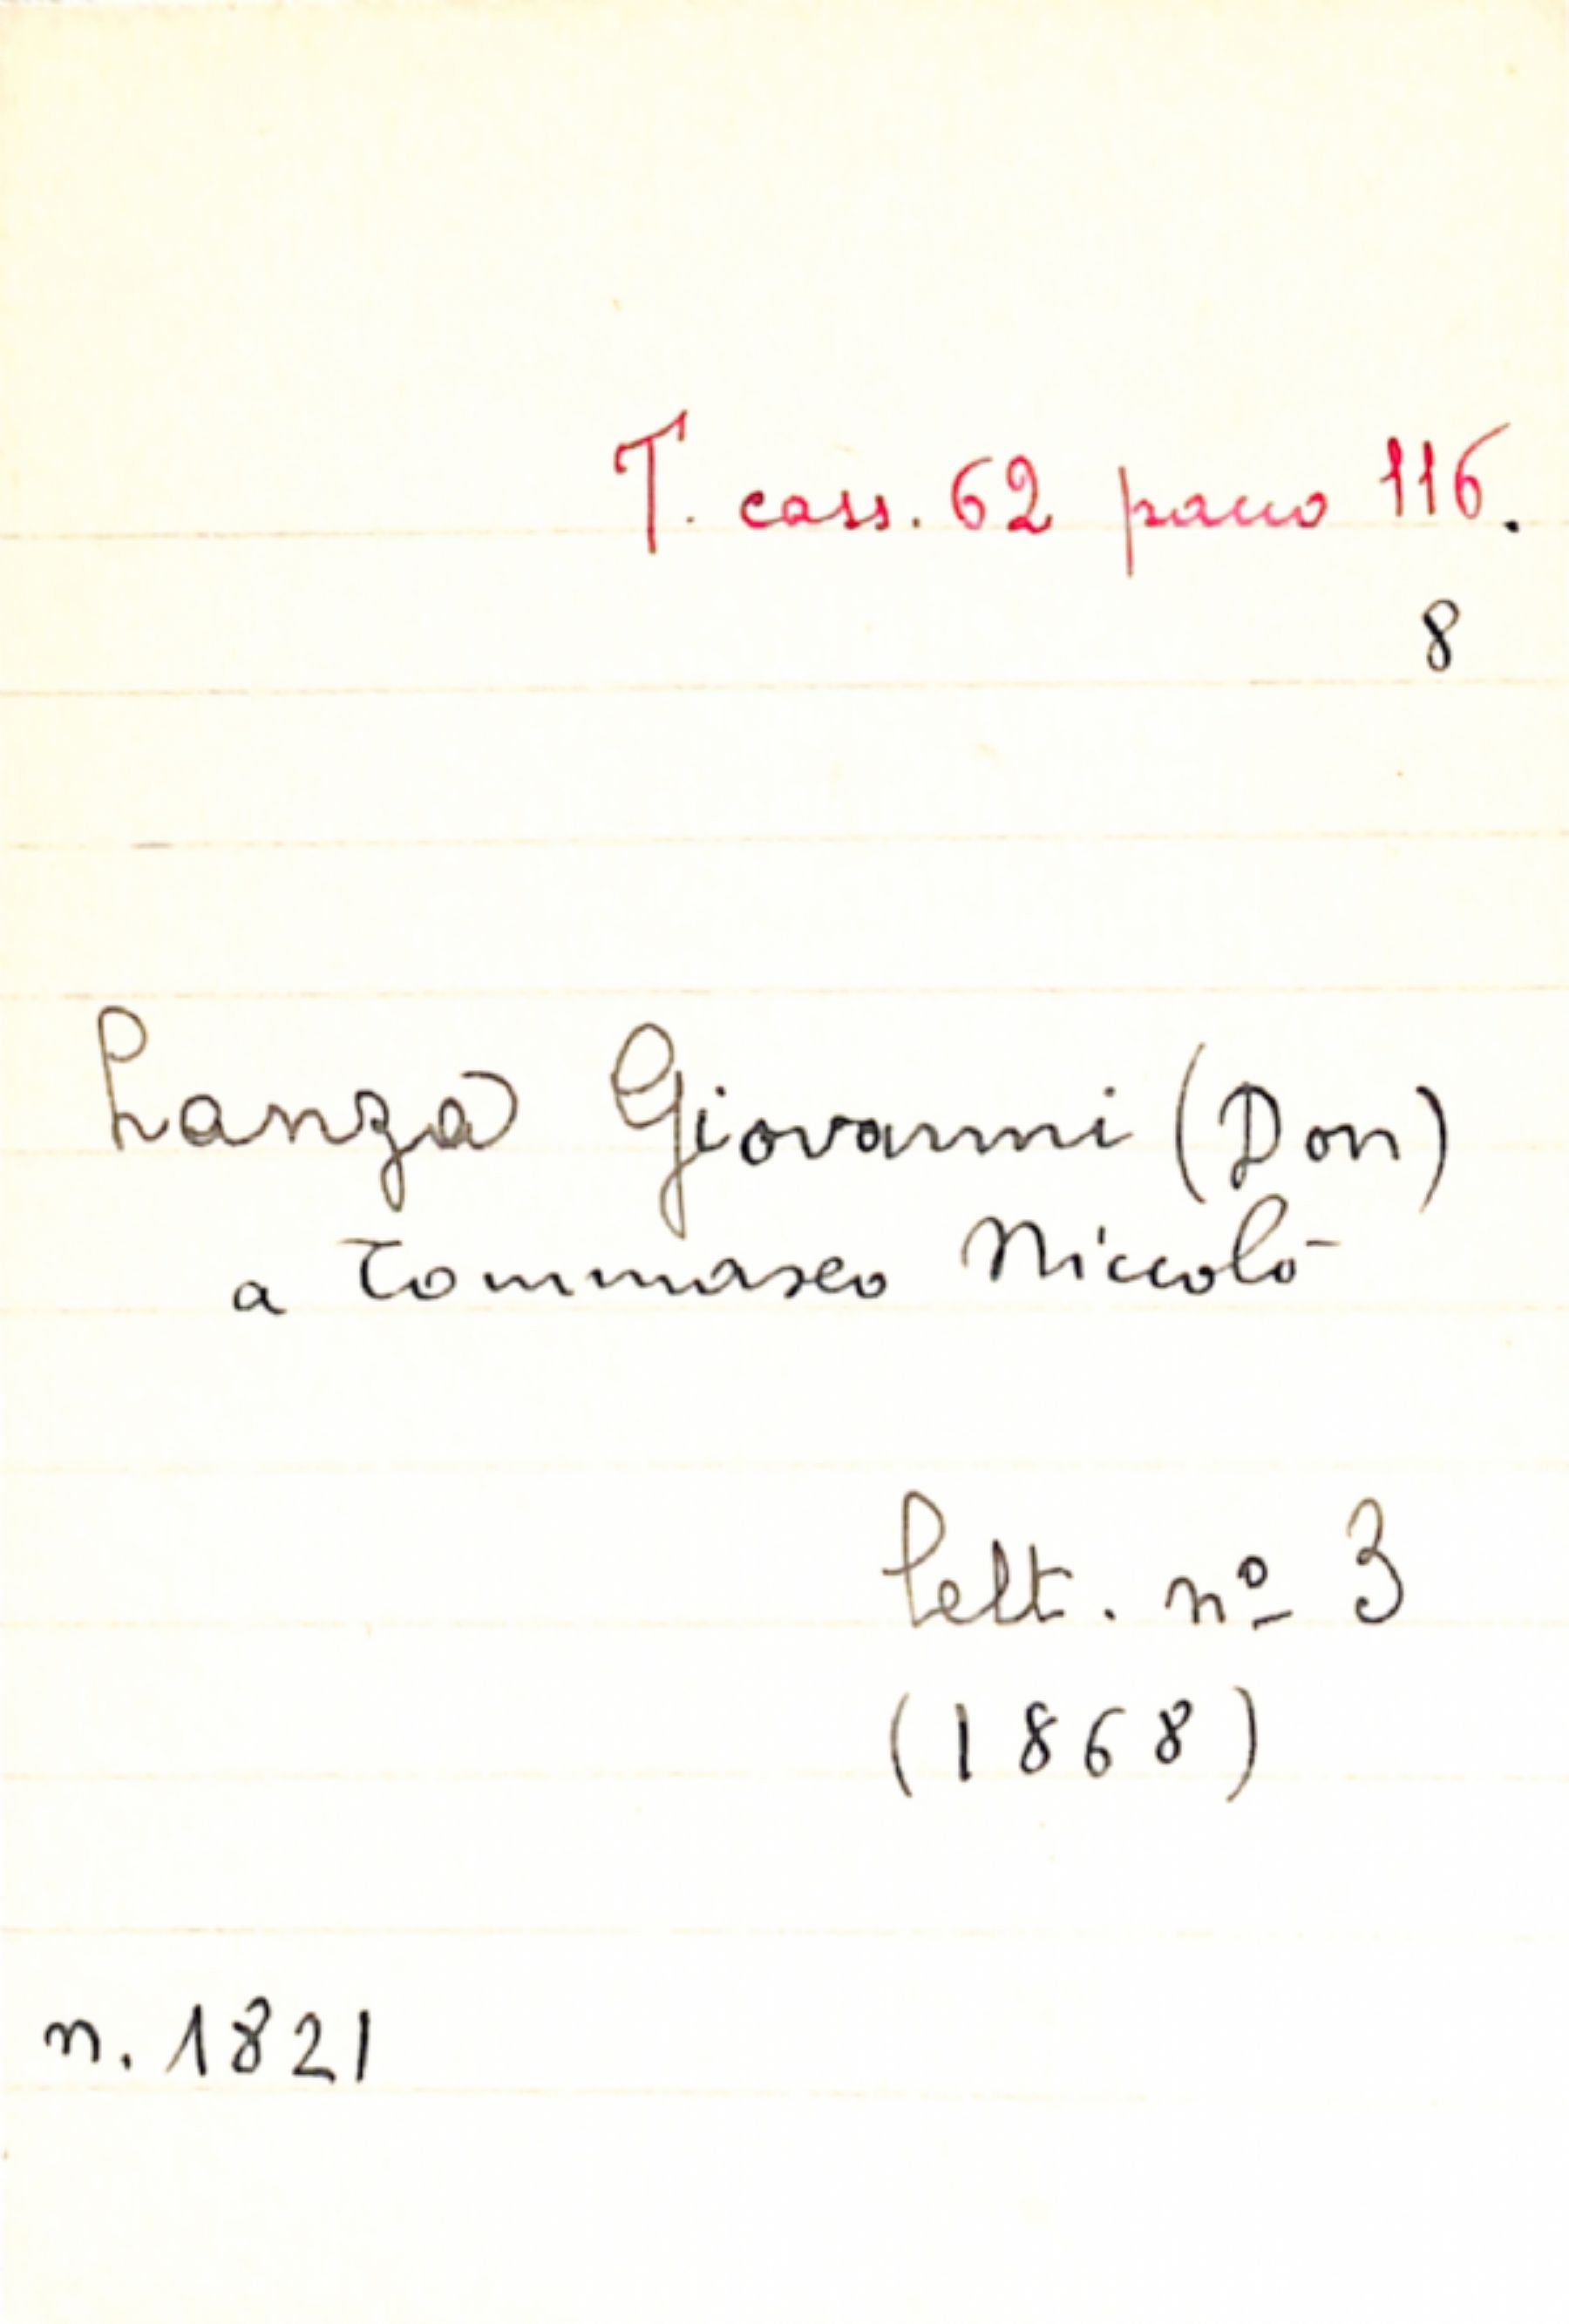 T. cass. 62 pacco 116.
8
Lanza Giovanni (Don)
a Tommaseo Niccolò
lett. nº 3
(1868)
n. 1821